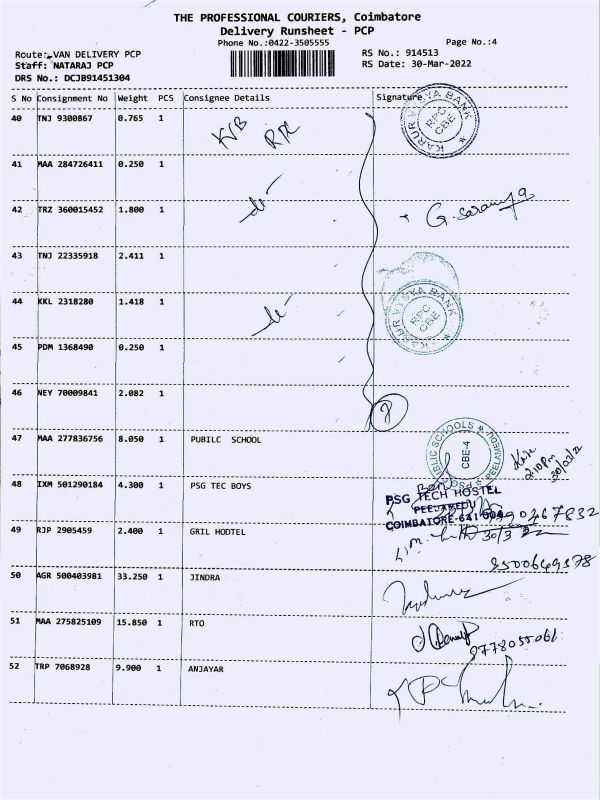 THE PROFESSIONAL COURIERS, Coimbatore
Delivery Runsheet - PCP
Phone No.:0422-3505555
Page No.:4
Route: VAN DELIVERY PCP
RS No.: 914513
Staff: NATARAJ PCP
RS Date: 30-Mar-2022
DRS No.: DCJB91451304
S No Consignment No Weight PCS Consignee Details Signature
40 TNJ 9300867 0.765 1 KVB RPC
KARUR VYSYA BANK RPC CBE
41 MAA 284726411 0.250 1
42 TRZ 360015452 1.800 1 G. Saranya
43 TNJ 22335918 2.411 1
44 KKL 2318280 1.418 1
KARUR VYSYA BANK RPC CBE
45 PDM 1368490 0.250 1
46 NEY 70009841 2.082 1
47 MAA 277836756 8.050 1 PUBILC SCHOOL
PSG PUBLIC SCHOOLS PEELAMEDU CBE-4
2:10 Pm
48 IXM 501290184 4.300 1 PSG TEC BOYS
PSG TECH HOSTEL
PEELAMEDU
COIMBATORE-641 004
49 RJP 2905459 2.400 1 GRIL HODTEL
30/3
9500649378
50 AGR 500403981 33.250 1 JINDRA
51 MAA 275825109 15.850 1 RTO
9778055061
52 TRP 7068928 9.900 1 ANJAYAR